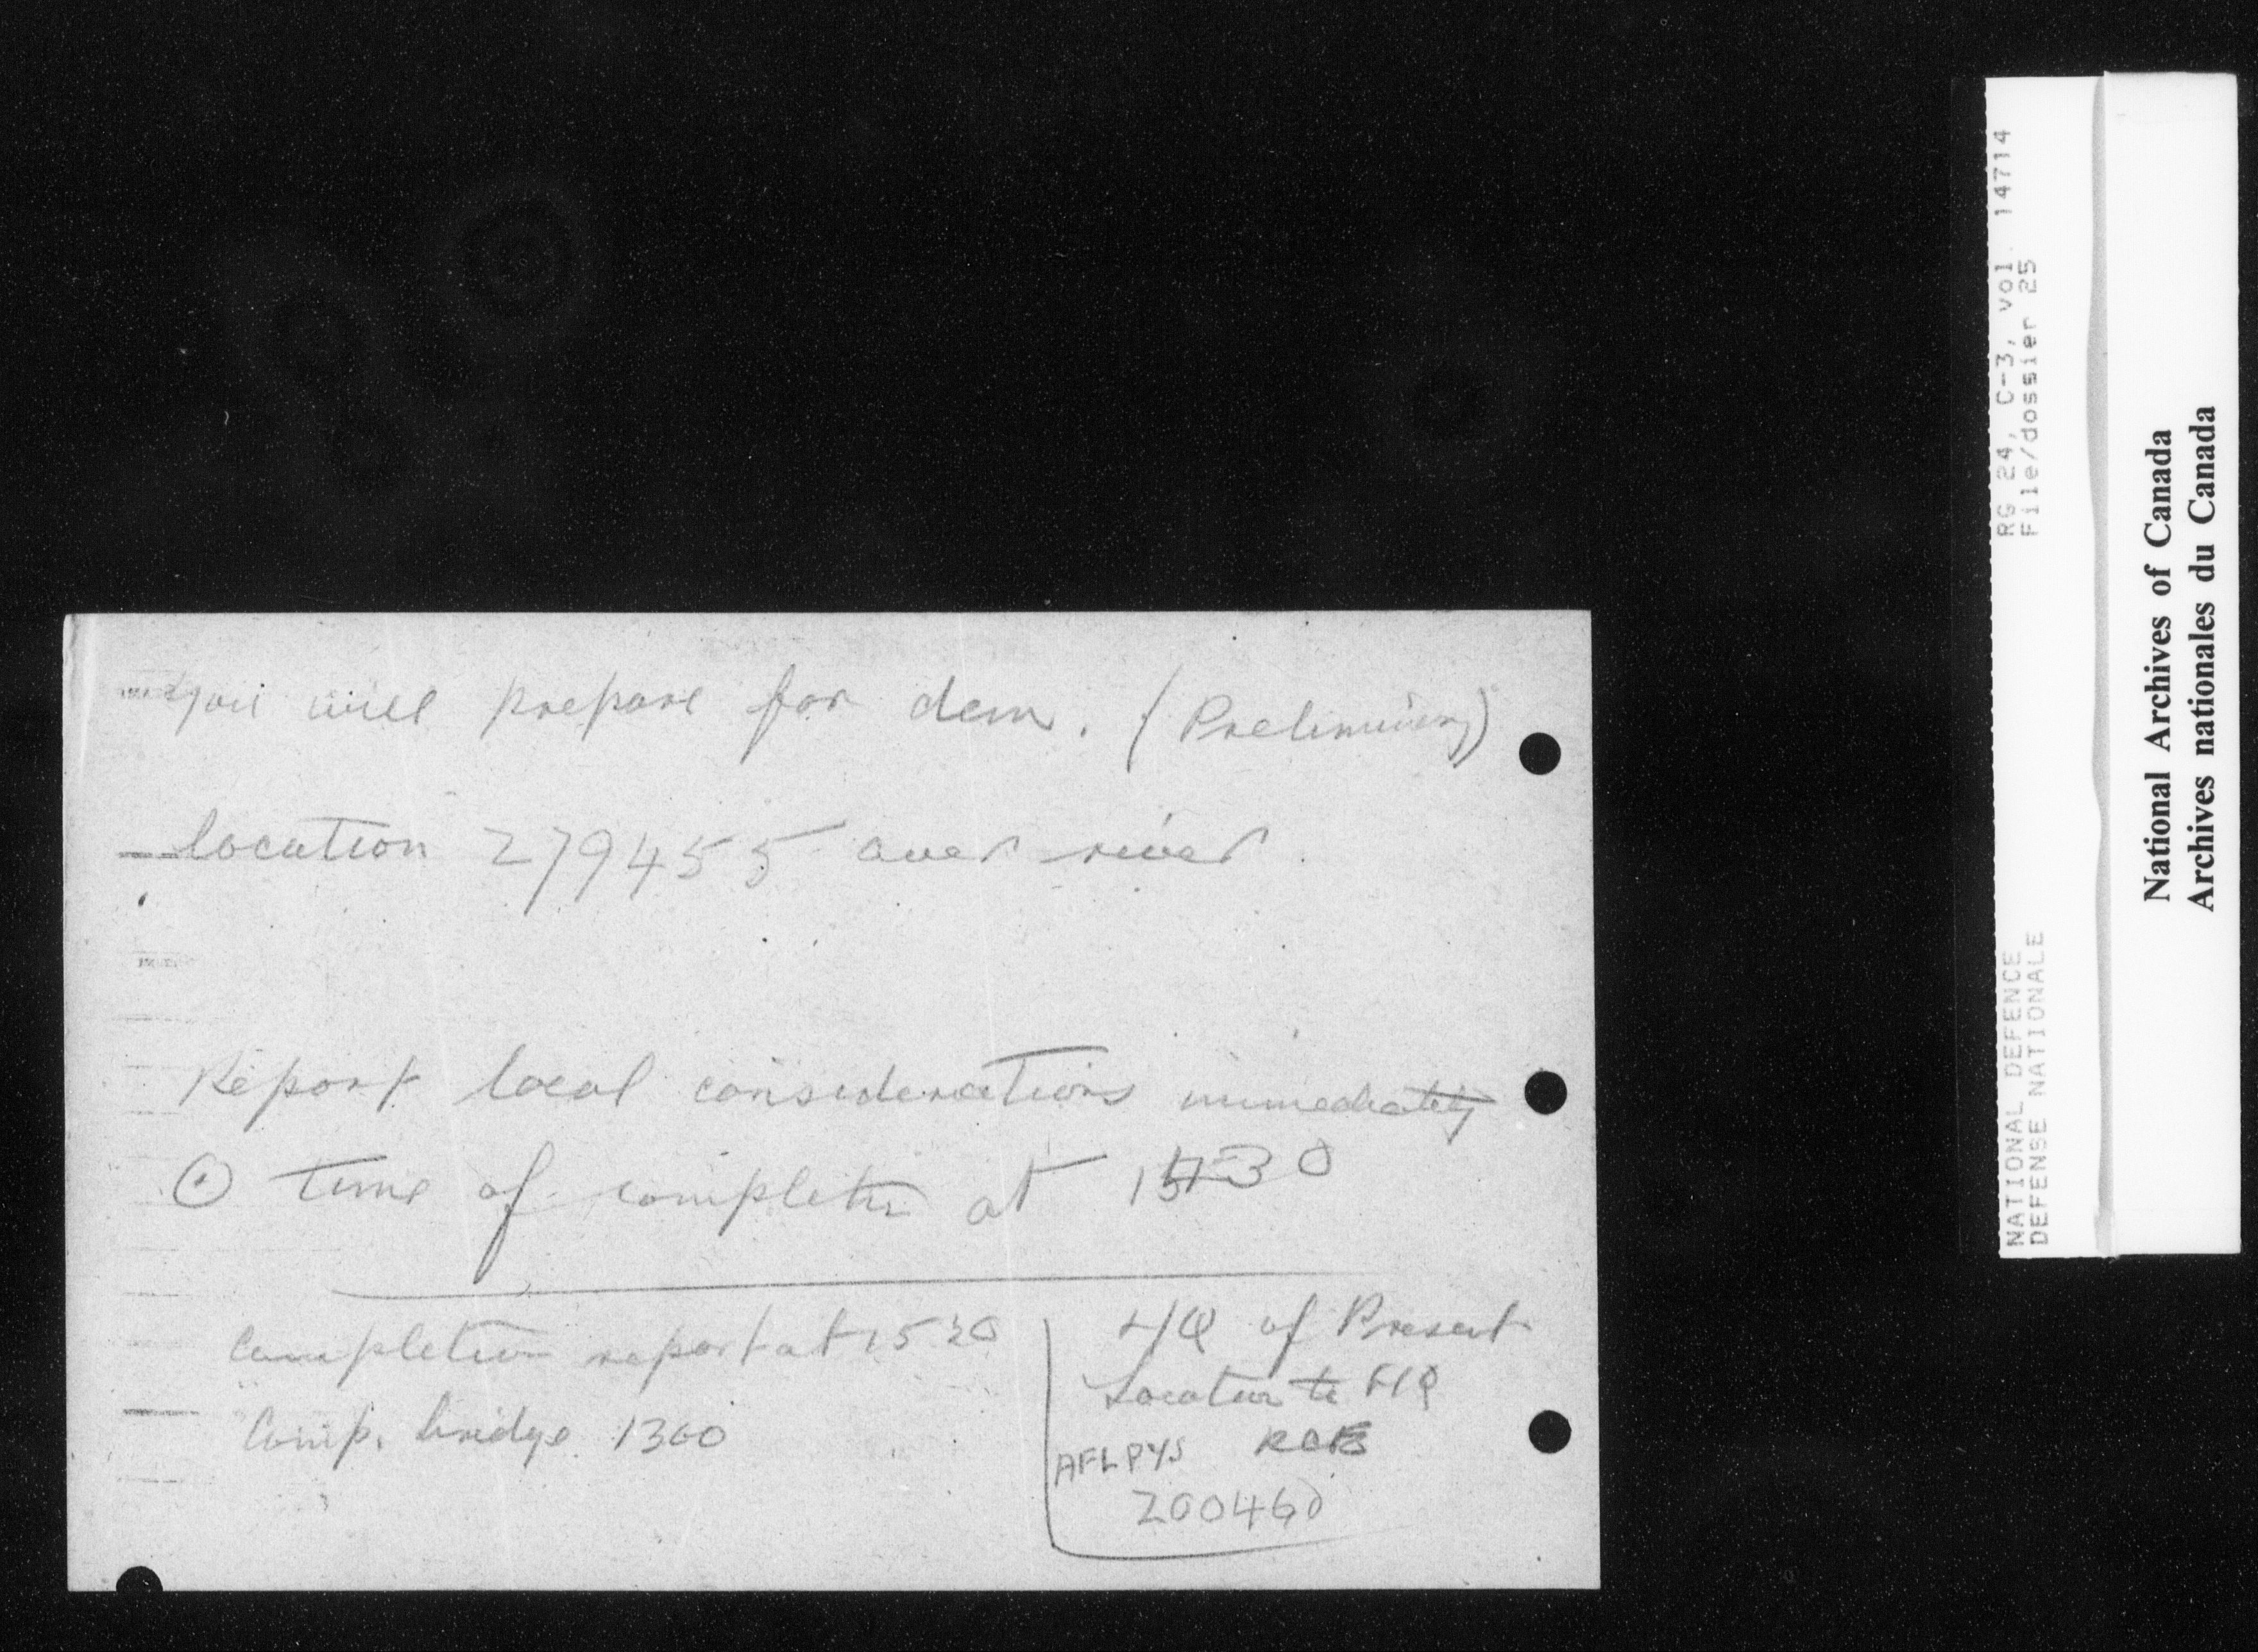 you will prepare for dem. (Preliminary)
location 279455 over river.
Report local considerations immediately
time of completn at 1530
Completion report at 1530
Comp. bridge 1300
HQ of Present
Location to HQ
RCE
AFLPYS
200460
RG 24, C-3, vol. 14714
File/dossier 25
NATIONAL DEFENCE
DEFENSE NATIONALE
National Archives of Canada
Archives nationales du Canada